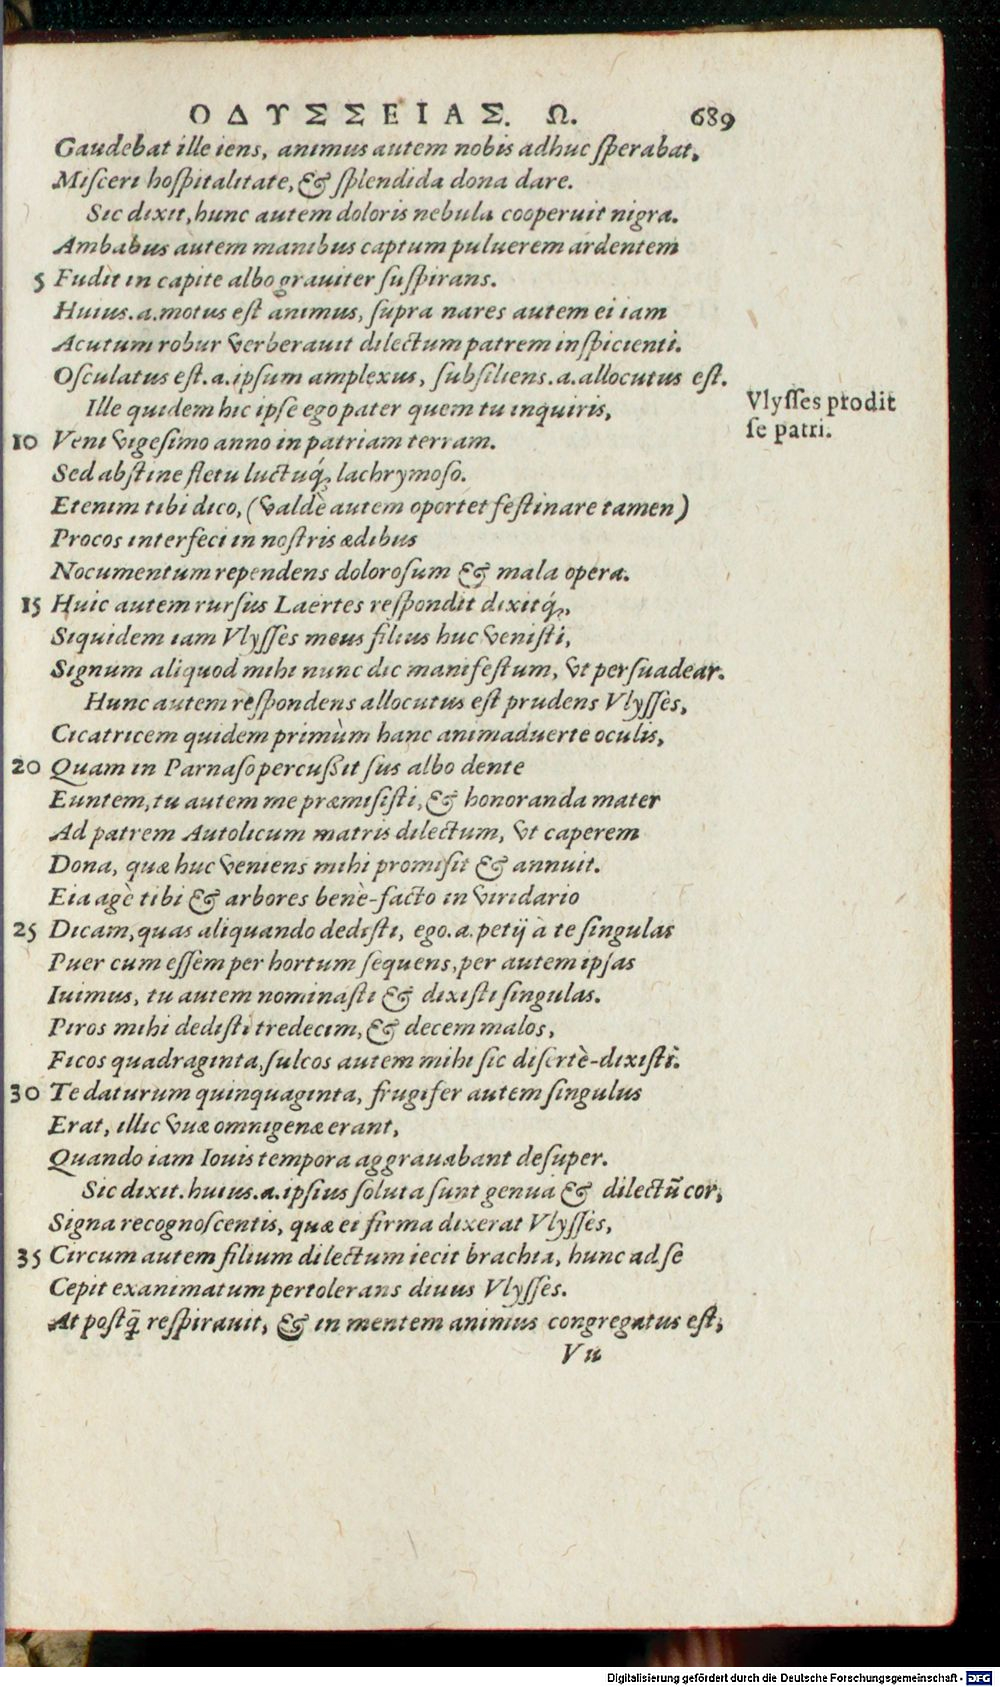 ΟΔΥΣΣΕΙΑΣ. Ω. 689
Gaudebat ille iens, animus autem nobis adhuc ſperabat,
Miſceri hoſpitalitate, & ſplendida dona dare.
Sic dixit, hunc autem doloris nebula cooperuit nigra.
Ambabus autem manibus captum puluerem ardentem
5 Fudit in capite albo grauiter ſuſpirans.
Huius.a.motus eſt animus, ſupra nares autem ei iam
Acutum robur verberauit dilectum patrem inſpicienti.
Oſculatus eſt.a.ipſum amplexus, ſubſiliens.a.allocutus eſt.
Ille quidem hic ipſe ego pater quem tu inquiris,
Vlyſſes prodit
ſe patri.
10 Veni vigeſimo anno in patriam terram.
Sed abſtine fletu luctuq́; lachrymoſo.
Etenim tibi dico, (valdè autem oportet feſtinare tamen)
Procos interfeci in noſtris ædibus
Nocumentum rependens doloroſum & mala opera.
15 Huic autem rurſus Laertes reſpondit dixitq́;,
Siquidem iam Vlyſſes meus filius huc veniſti,
Signum aliquod mihi nunc dic manifeſtum, vt perſuadear.
Hunc autem reſpondens allocutus eſt prudens Vlyſſes,
Cicatricem quidem primùm hanc animaduerte oculis,
20 Quam in Parnaſo percußit ſus albo dente
Euntem, tu autem me præmiſiſti, & honoranda mater
Ad patrem Autolicum matris dilectum, vt caperem
Dona, quæ huc veniens mihi promiſit & annuit.
Eia agè tibi & arbores benè-facto in viridario
25 Dicam, quas aliquando dediſti, ego.a.petij à te ſingulas
Puer cum eſſem per hortum ſequens, per autem ipſas
Iuimus, tu autem nominaſti & dixiſti ſingulas.
Piros mihi dediſti tredecim, & decem malos,
Ficos quadraginta, ſulcos autem mihi ſic diſertè-dixiſti.
30 Te daturum quinquaginta, frugifer autem ſingulus
Erat, illic vuæ omnigenæ erant,
Quando iam Iouis tempora aggrauabant deſuper.
Sic dixit.huius.a.ipſius ſoluta ſunt genua & dilectū cor,
Signa recognoſcentis, quæ ei firma dixerat Vlyſſes,
35 Circum autem filium dilectum iecit brachia, hunc ad ſe
Cepit exanimatum pertolerans diuus Vlyſſes.
At poſtq̃ reſpirauit, & in mentem animus congregatus eſt,
V u
Digitalisierung gefördert durch die Deutsche Forschungsgemeinschaft - DFG